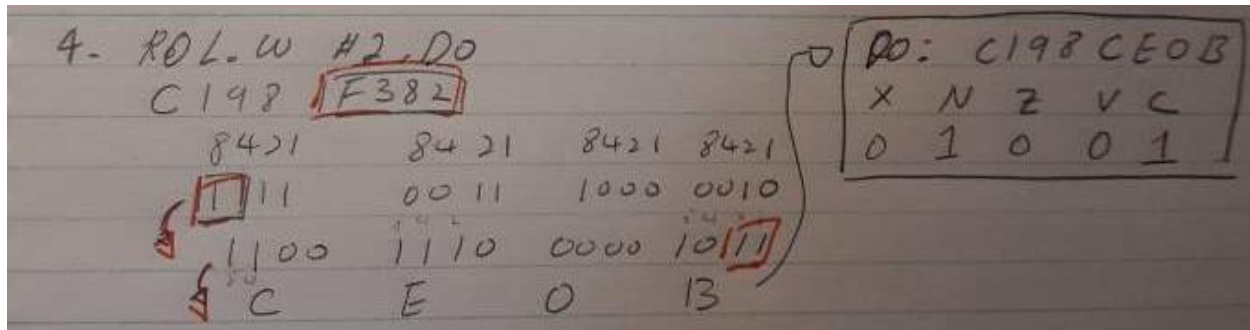 4- ROL.W #2,D0
C198 F382
8421 8421 8421 8421
1111 0011 1000 0010
1100 1110 0000 1011
C E 0 B
D0: C198CE0B
X N Z V C
0 1 0 0 1